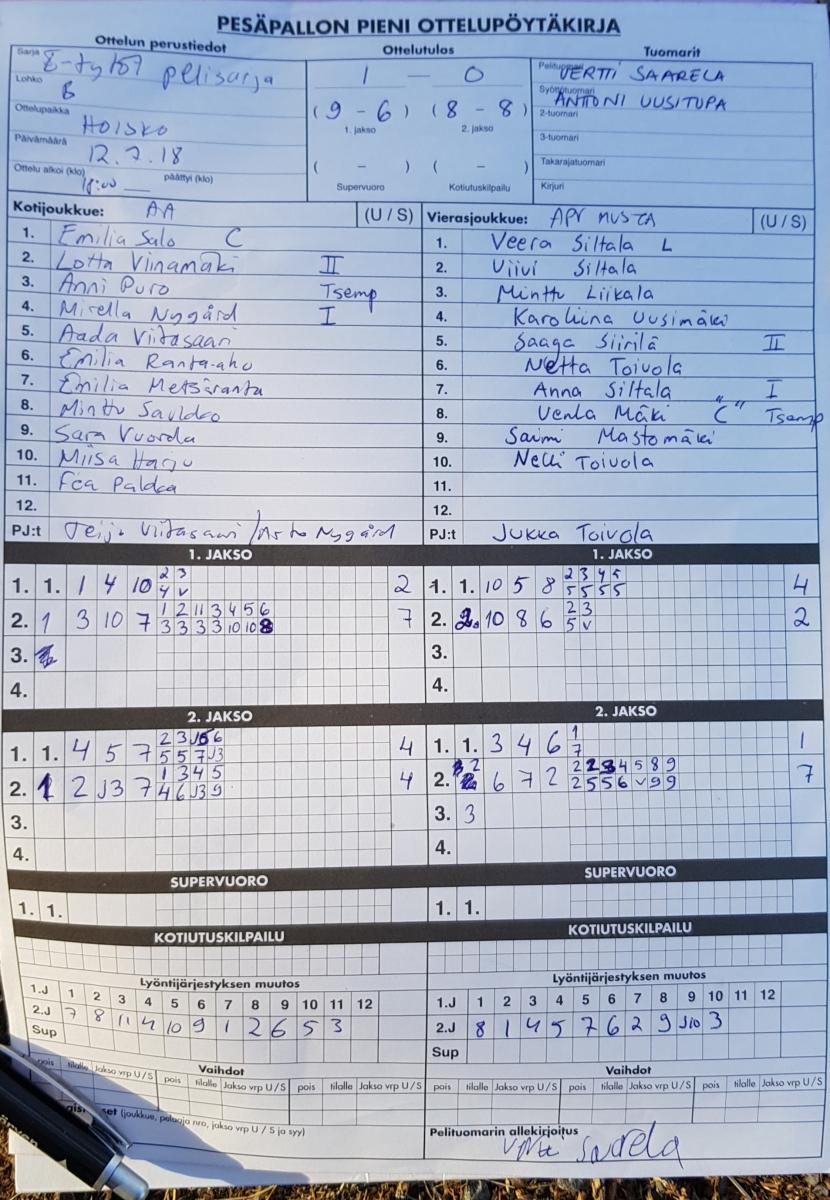 PESÄPALLON PIENI OTTELUPÖYTÄKIRJA
Ottelun perustiedot
Sarja E-tytöt pelisarja
Lohko B
Ottelupaikka Hoisko
Päivämäärä 12.7.18
Ottelu alkoi (klo) 18:00 päättyi (klo)
Ottelutulos
1 — 0
(9 - 6) (8 - 8)
1. jakso 2. jakso
( - ) ( - )
Supervuoro Kotiutuskilpailu
Tuomarit
Pelituomari VERTTI SAARELA
Syöttötuomari ANTONI UUSITUPA
2-tuomari
3-tuomari
Takarajatuomari
Kirjuri
Kotijoukkue: AA (U / S)
1. Emilia Salo C
2. Lotta Viinamäki II
3. Anni Puro Tsemp
4. Mirella Nygård I
5. Aada Viitasaari
6. Emilia Ranta-aho
7. Emilia Metsäranta
8. Minttu
9. Sara
10. Miisa Harju
11.
12.
PJ:t Viitasaari / Nygård
Vierasjoukkue: APV MUSTA (U / S)
1. Veera Siltala L
2. Viivi Siltala
3. Minttu Liikala
4. Karoliina Uusimäki
5. Saaga Siirilä II
6. Netta Toivola
7. Anna Siltala I
8. Venla Mäki "C" Tsemp
9. Saimi Mastomäki
10. Nelli Toivola
11.
12.
PJ:t Jukka Toivola
1. JAKSO
1. 1. 1 4 10 2 3 2
4 v
2. 1 3 10 7 1 2 11 3 4 5 6 7
3 3 3 3 10 10 8
3.
4.
1. JAKSO
1. 1. 10 5 8 2 3 4 5 4
5 5 5 5
2. 2. 10 8 6 2 3 2
5 v
3.
4.
2. JAKSO
1. 1. 4 5 7 2 3 J5 6 4
5 5 7 J3
2. 1 2 J3 7 1 3 4 5 4
4 6 J3 9
3.
4.
2. JAKSO
1. 1. 3 4 6 1 1
7
2. 2 6 7 2 2 2 3 4 5 8 9 7
2 5 5 6 v 9 9
3. 3
4.
SUPERVUORO
1. 1.
SUPERVUORO
1. 1.
KOTIUTUSKILPAILU
KOTIUTUSKILPAILU
Lyöntijärjestyksen muutos
1.J 1 2 3 4 5 6 7 8 9 10 11 12
2.J 7 8 11 4 10 9 1 2 6 5 3
Sup
Lyöntijärjestyksen muutos
1.J 1 2 3 4 5 6 7 8 9 10 11 12
2.J 8 1 4 5 7 6 2 9 J10 3
Sup
Vaihdot
pois tilalle Jakso vrp U / S pois tilalle Jakso vrp U / S pois tilalle Jakso vrp U / S
Vaihdot
pois tilalle Jakso vrp U / S pois tilalle Jakso vrp U / S pois tilalle Jakso vrp U / S
(joukkue, pelaaja nro, jakso vrp U / S ja syy)
Pelituomarin allekirjoitus
Saarela